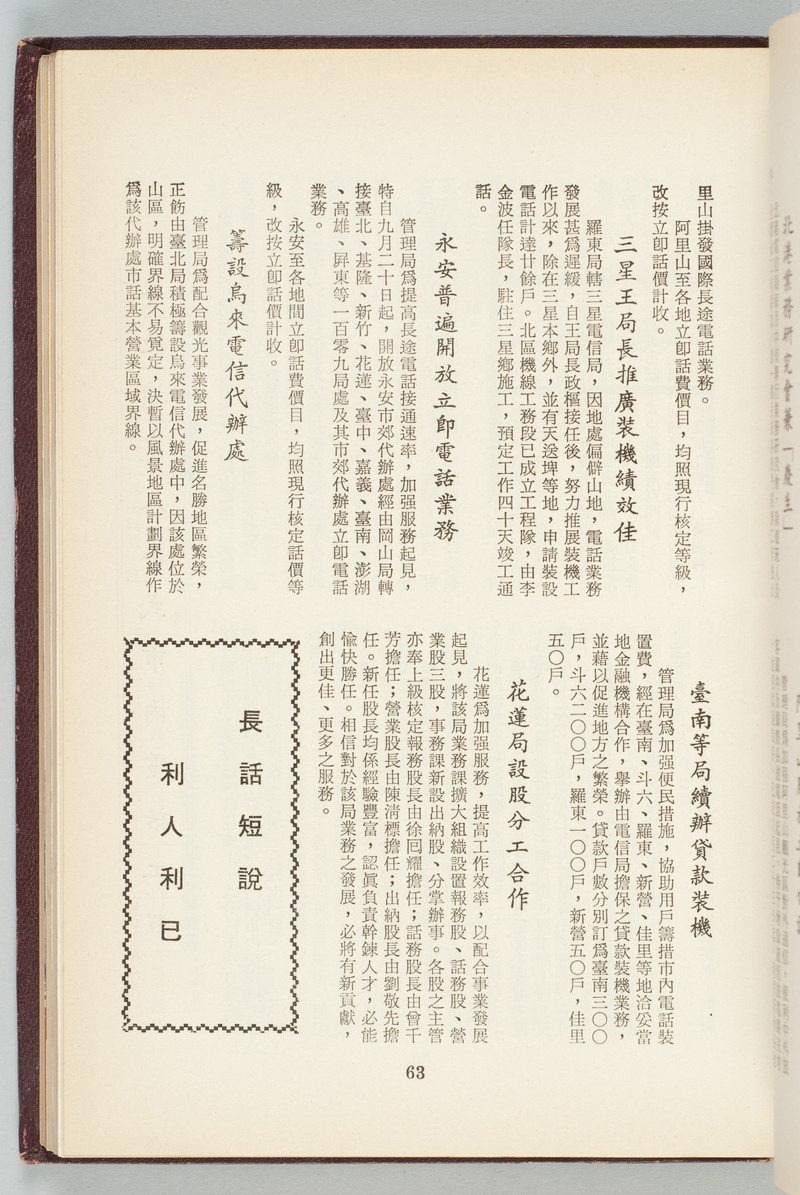 里山掛發國際長途電話業務。
阿里山至各地立卽話費價目，均照現行核定等級，
改按立卽話價計收。
三星王局長推廣裝機績效佳
羅東局轄三星電信局，因地處偏僻山地，電話業務
發展甚爲遲緩，自王局長政樞接任後，努力推展裝機工
作以來，除在三星本鄉外，並有天送埤等地，申請裝設
電話計達廿餘戶。北區機線工務段已成立工程隊，由李
金波任隊長，駐住三星鄉施工，預定工作四十天竣工通
話。
永安普遍開放立卽電話業務
管理局爲提高長途電話接通速率，加强服務起見，
特自九月二十日起，開放永安市郊代辦處經由岡山局轉
接臺北、基隆、新竹、花蓮、臺中、嘉義、臺南、澎湖
、高雄、屏東等一百零九局處及其市郊代辦處立卽電話
業務。
永安至各地間立卽話費價目，均照現行核定話價等
級，改按立卽話價計收。
籌設烏來電信代辦處
管理局爲配合觀光事業發展，促進名勝地區繁榮，
正飭由臺北局積極籌設烏來電信代辦處中，因該處位於
山區，明確界線不易覓定，決暫以風景地區計劃界線作
爲該代辦處市話基本營業區域界線。
臺南等局續辦貸款裝機
管理局爲加强便民措施，協助用戶籌措市內電話裝
置費，經在臺南、斗六、羅東、新營、佳里等地洽妥當
地金融機構合作，舉辦由電信局擔保之貸款裝機業務，
並藉以促進地方之繁榮。貸款戶數分別訂爲臺南三〇〇
戶，斗六二〇〇戶，羅東一〇〇戶，新營五〇戶，佳里
五〇戶。
花蓮局設股分工合作
花蓮爲加强服務，提高工作效率，以配合事業發展
起見，將該局業務課擴大組織設置報務股、話務股、營
業股三股，事務課新設出納股、分掌辦事。各股之主管
亦奉上級核定報務股長由徐囘耀擔任；話務股長由曾千
芳擔任；營業股長由陳淸標擔任；出納股長由劉敬先擔
任。新任股長均係經驗豐富，認眞負責幹鍊人才，必能
愉快勝任。相信對於該局業務之發展，必將有新貢獻，
創出更佳、更多之服務。
長話短說
利人利已
63